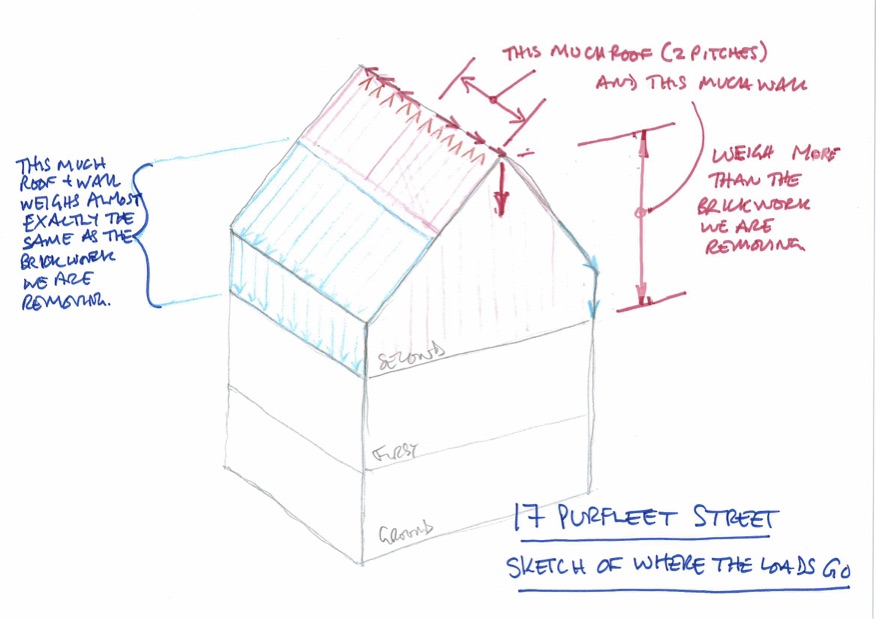 THIS MUCH ROOF (2 PITCHES)
AND THIS MUCH WALL
WEIGH MORE
THAN THE
BRICKWORK
WE ARE
REMOVING
THIS MUCH
ROOF + WALL
WEIGHS ALMOST
EXACTLY THE
SAME AS THE
BRICKWORK
WE ARE
REMOVING.
SECOND
FIRST
GROUND
17 PURFLEET STREET
SKETCH OF WHERE THE LOADS GO